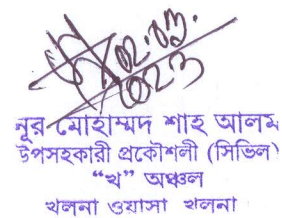 02.03.
2023
নুর মোহাম্মদ শাহ আলম
উপসহকারী প্রকৌশলী (সিভিল)
“খ” অঞ্চল
খুলনা ওয়াসা খুলনা